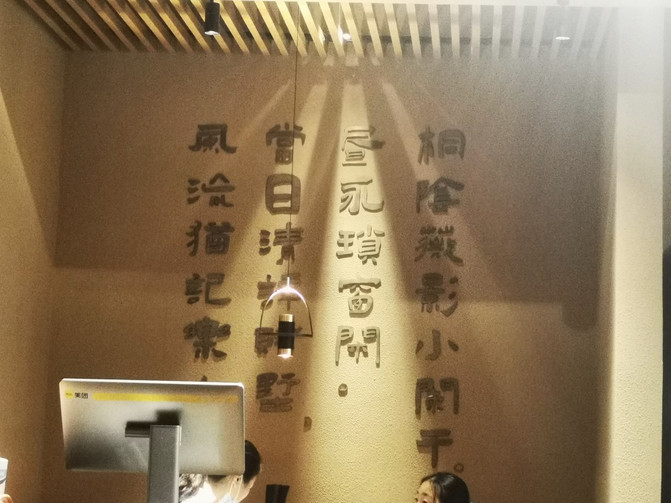 桐陰薇影小闌干。
昼永瑣窗閑。
當日清墅,
風流猶記樂
美团